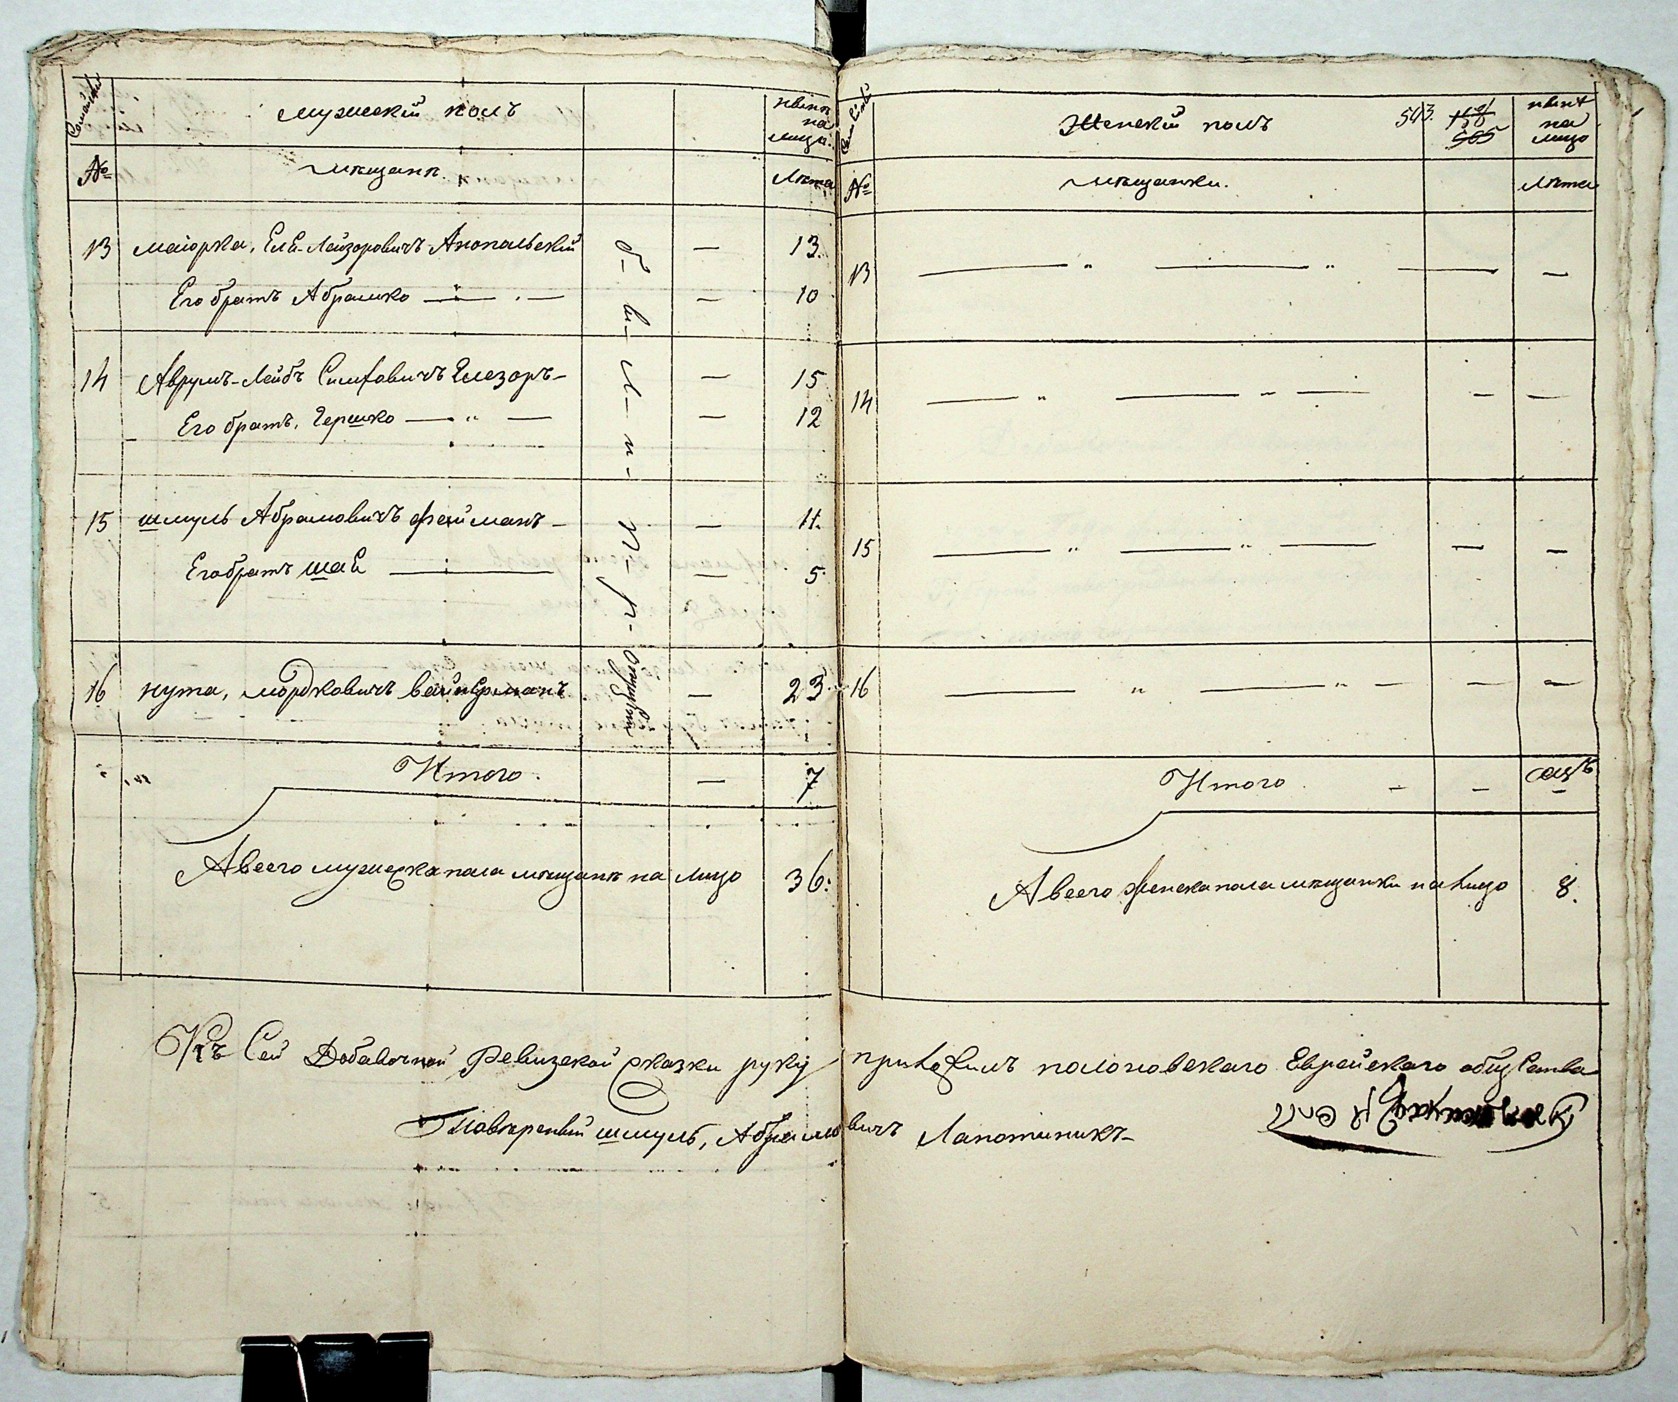 Семейства
мужеский полъ
нынѣ на лицо
№
мѣщанѣ
Лѣта
13 маіорка, Еля-Лейзоровичъ Анопальскій — 13.
Его брать Абрамко — " — — 10
14 Аврумъ-Лейбъ Симховичъ Глезоръ- — 15
Его братъ, Гершко — " — — 12
15 шмуль Абрамовичъ фейманъ- — 11.
Его братъ шая — — 5
16 нута, мордковичъ вайнерманъ — 23
Итого. — 7
А всего мужеска пола мѣщанъ на лицо 36.
Женскій полъ
543.
565
нынѣ на лицо
№
мѣщанки.
Лѣта
13 — " — " — —
14 — " — " — — —
15 — " — " — — —
16 — " — " — — —
Итого. — —
А всего женска пола мѣщанки на лицо 8.
Къ Сей Добавочной Ревизской сказки руку приложилъ полоновскаго Еврейскаго общества
Повѣренный шмуль, Абрамовичъ Лапотникъ-